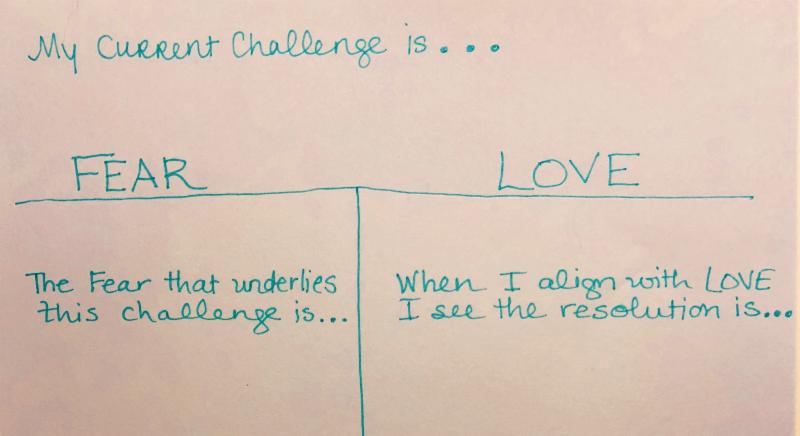 My Current Challenge is...
FEAR
LOVE
The Fear that underlies
this challenge is...
When I align with LOVE
I see the resolution is...